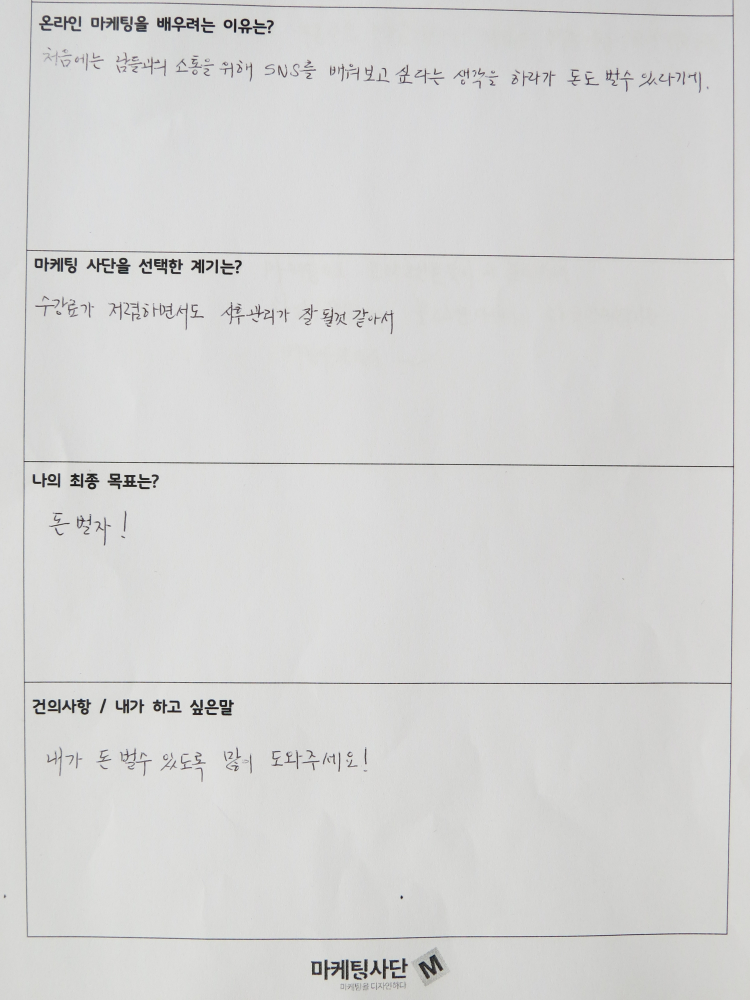 온라인 마케팅을 배우려는 이유는?
처음에는 남들과의 소통을 위해 SNS를 배워보고 싶다는 생각을 하다가 돈도 벌수 있다기에.
마케팅 사단을 선택한 계기는?
수강료가 저렴하면서도 사후관리가 잘 될것 같아서
나의 최종 목표는?
돈 벌자!
건의사항 / 내가 하고 싶은말
내가 돈 벌수 있도록 많이 도와주세요!
마케팅사단 M
마케팅을 디자인하다